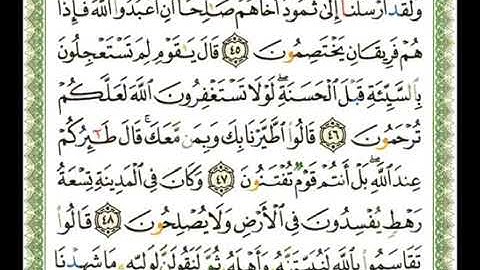 وَلَقَدْ أَرْسَلْنَا إِلَىٰ ثَمُودَ أَخَاهُمْ صَٰلِحًا أَنِ ٱعْبُدُوا۟ ٱللَّهَ فَإِذَا
هُمْ فَرِيقَانِ يَخْتَصِمُونَ ٤٥ قَالَ يَٰقَوْمِ لِمَ تَسْتَعْجِلُونَ
بِٱلسَّيِّئَةِ قَبْلَ ٱلْحَسَنَةِ ۖ لَوْلَا تَسْتَغْفِرُونَ ٱللَّهَ لَعَلَّكُمْ
تُرْحَمُونَ ٤٦ قَالُوا۟ ٱطَّيَّرْنَا بِكَ وَبِمَن مَّعَكَ ۚ قَالَ طَٰٓئِرُكُمْ
عِندَ ٱللَّهِ ۖ بَلْ أَنتُمْ قَوْمٌ تُفْتَنُونَ ٤٧ وَكَانَ فِى ٱلْمَدِينَةِ تِسْعَةُ
رَهْطٍ يُفْسِدُونَ فِى ٱلْأَرْضِ وَلَا يُصْلِحُونَ ٤٨ قَالُوا۟
تَقَاسَمُوا۟ بِٱللَّهِ لَنُبَيِّتَنَّهُۥ وَأَهْلَهُۥ ثُمَّ لَنَقُولَنَّ لِوَلِيِّهِۦ مَا شَهِدْنَا